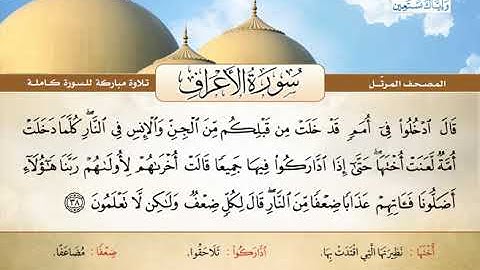 وَإِيَّاكَ نَسْتَعِينُ
المصحف المرتل
سُورَةُ الأَعْرَافِ
تلاوة مباركة للسورة كاملة
قَالَ ادْخُلُوا فِي أُمَمٍ قَدْ خَلَتْ مِن قَبْلِكُم مِّنَ الْجِنِّ وَالْإِنسِ فِي النَّارِ ۖ كُلَّمَا دَخَلَتْ
أُمَّةٌ لَّعَنَتْ أُخْتَهَا ۖ حَتَّىٰ إِذَا ادَّارَكُوا فِيهَا جَمِيعًا قَالَتْ أُخْرَىٰهُمْ لِأُولَىٰهُمْ رَبَّنَا هَٰؤُلَاءِ
أَضَلُّونَا فَـَٔاتِهِمْ عَذَابًا ضِعْفًا مِّنَ النَّارِ ۖ قَالَ لِكُلٍّ ضِعْفٌ وَلَٰكِن لَّا تَعْلَمُونَ ٣٨
أُخْتَهَا: نَظِيرَتَهَا الَّتِي اقْتَدَتْ بِهَا. ادَّارَكُوا: تَلَاحَقُوا. ضِعْفًا: مُضَاعَفًا.